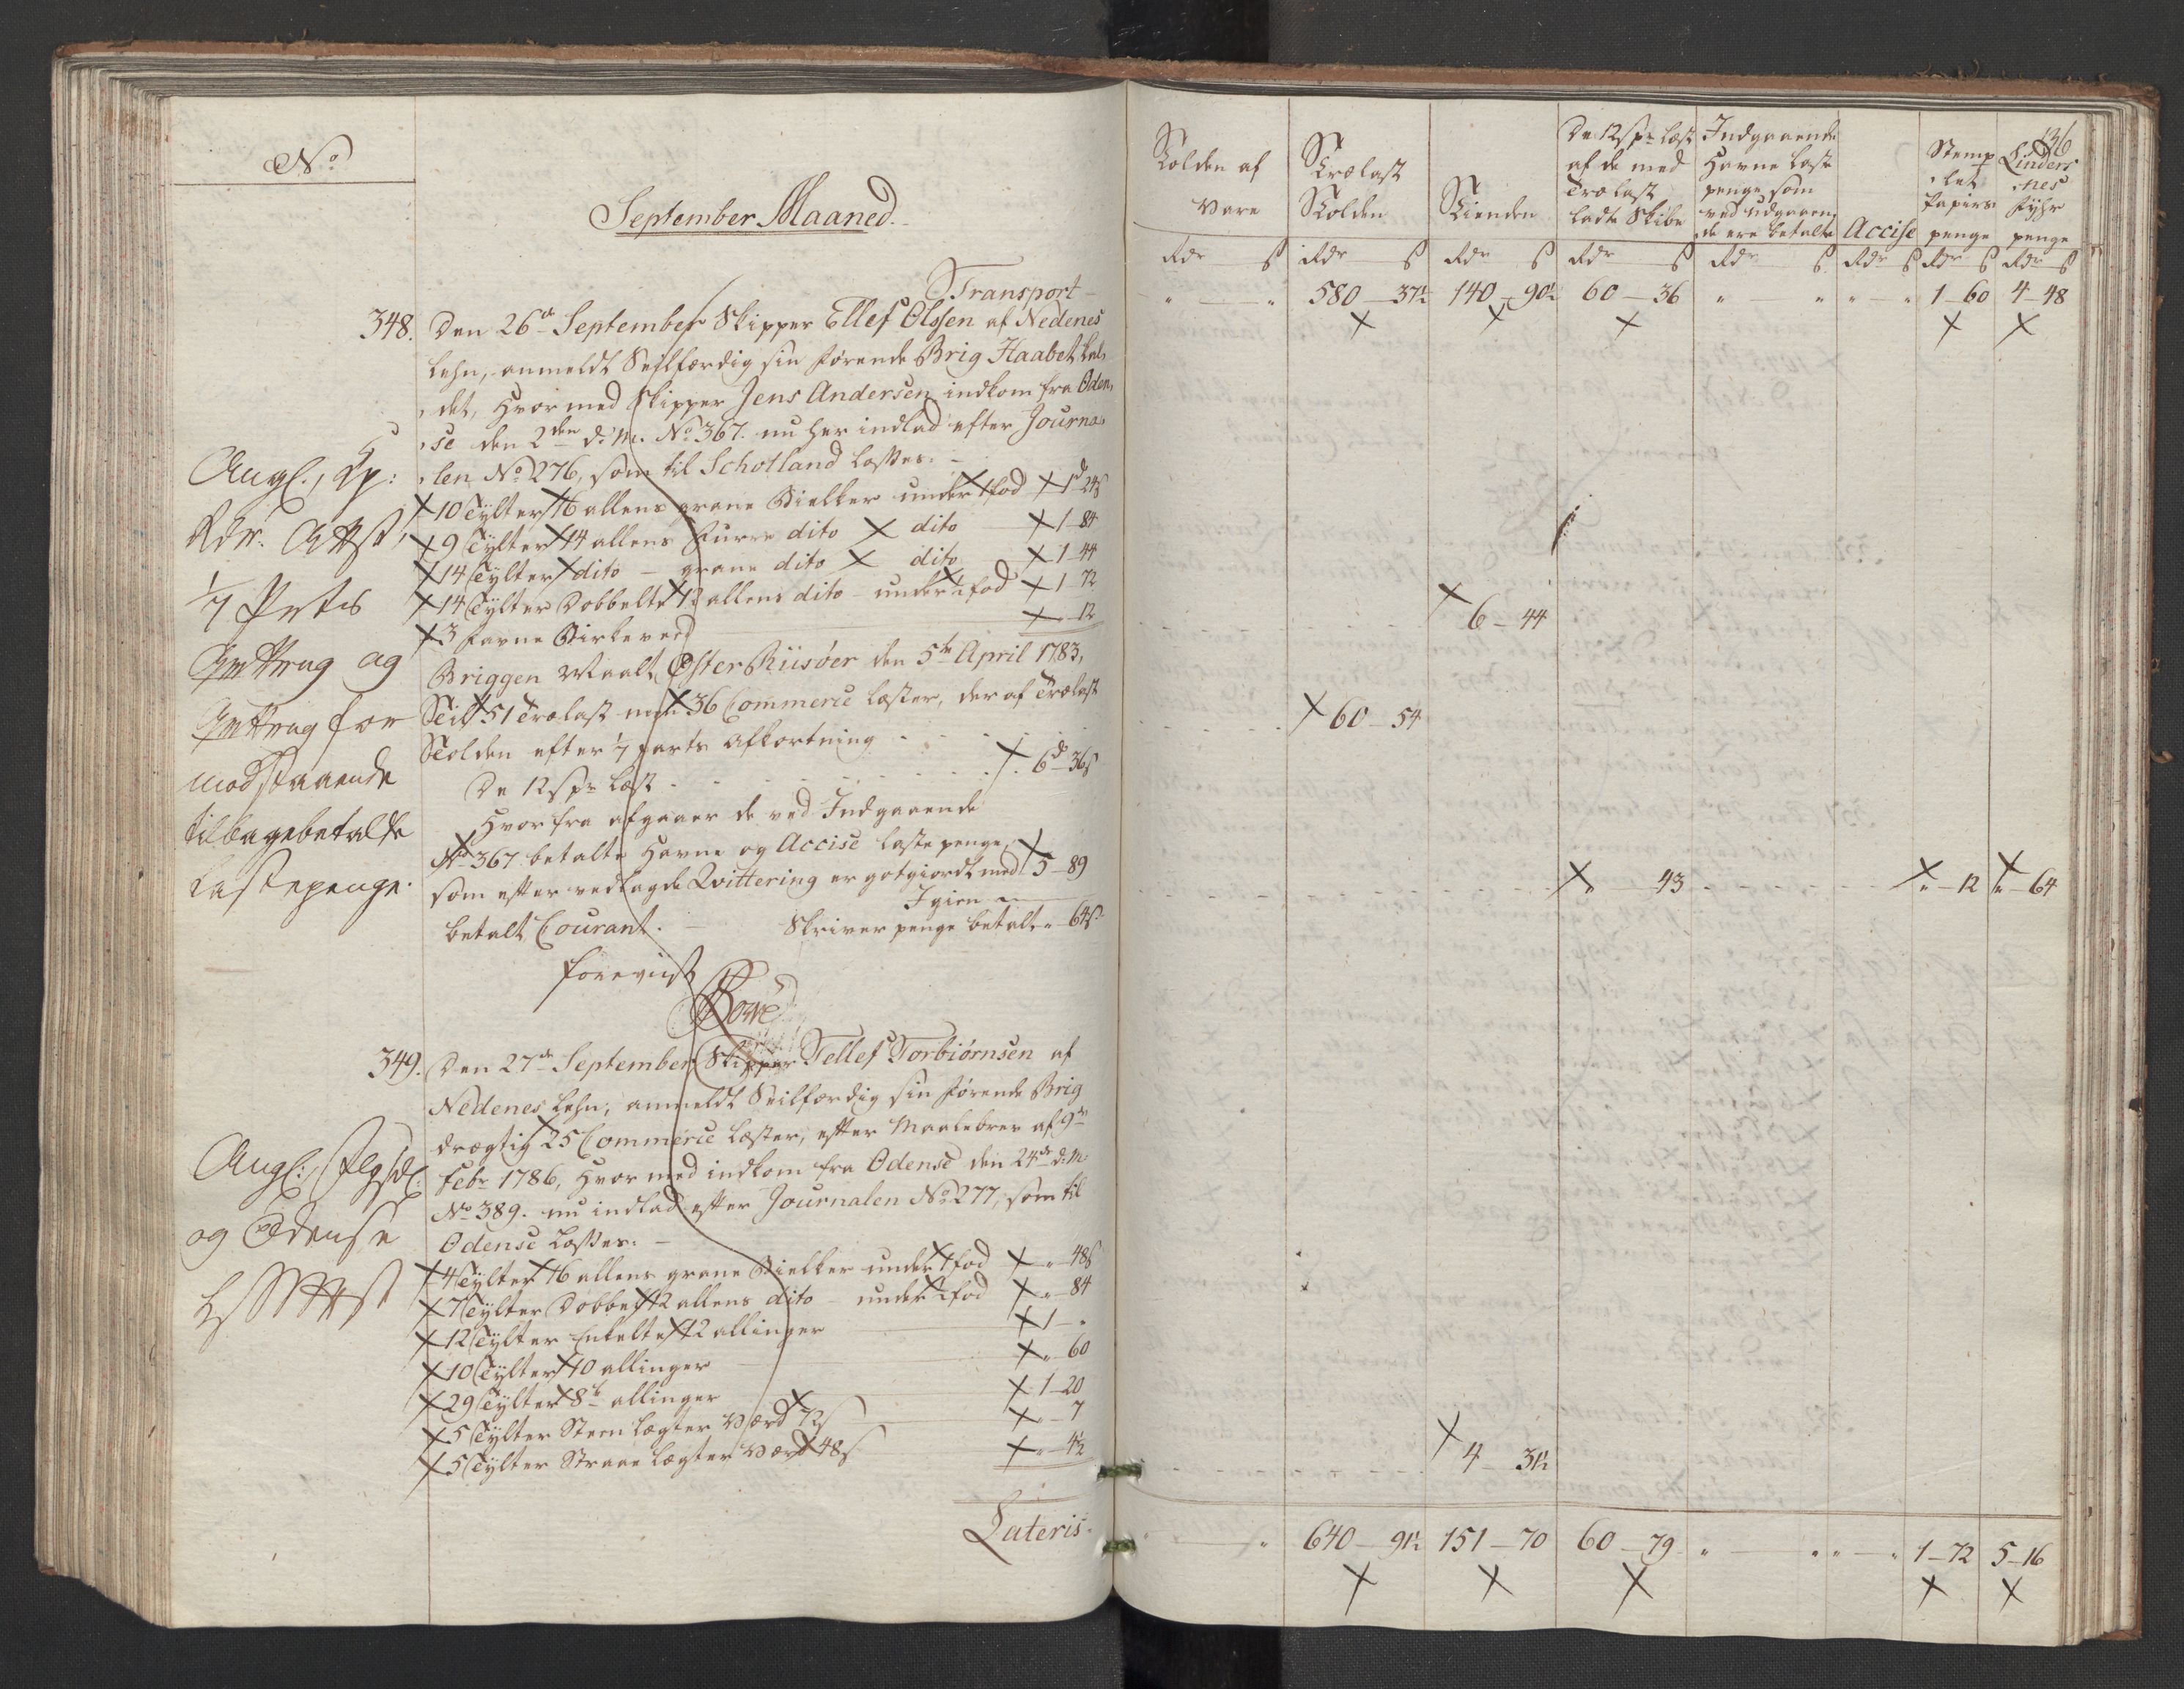 No
September Maaned.
Transport
348. Den 26de September Skipper Ellef Olsen af Nedenes
Lehn, anmeldt Seilfærdig sin førende Brig Haabet kal,
, det, hvor med Skipper Jens Andersen indkom fra Oden,
, se den 2den d: M. No 367. nu her indlad efter Journa,
, len No 276, som til Schotland losses. –
10 Tylter 16 allens grane Bielker under 1 fod 1d 24s
9 Tylter 14 allens Furre dito dito 1 – 84
14 Tylter dito – grane dito dito 1 – 44
14 Tylter Dobbelte 12 allens dito – under 1/2 fod 1 – 72
3 favne Birkeved – 12
Briggen Maalt Øster Riisøer den 5te April 1783,
Til 51 Trælast men 36 Commerce læster, der af Trælast
Tolden efter 1/7 parts Afkortning
De 12 s pr læst 6d 36s
Hvor fra afgaaer de ved Indgaaende
No 367 betalte Havne og Accise laste penge,
som efter vedlagde Qvittering er godgiordt med 5 – 89
Igien "
betalt Courant. – Skriver penge betalt " 64s
foreviist
349. Den 27de September Skipper Tellef Torbiørnsen af
Nedenes Lehn, anmeldt Seilfærdig sin førende Brig
drægtig 25 Commerce læster, efter Maalebrev af 9de
Febr 1786, hvor med indkom fra Odense den 24de d: M.
No 389. nu indlad efter Journalen No 277, som til
Odense losses. –
4 Tylter 16 allens grane Bielker under 1 fod " – 48s
7 Tylter Dobbelt 12 allens dito – under 1/2 fod " – 84
12 Tylter Enkelte 12 allinger 1 – "
10 Tylter 10 allinger " 60
29 Tylter 8te allinger 1 – 20
5 Tylter Steen Lægter værd 72s " – 7
5 Tylter Straae Lægter værd 48s " – 4 1/2
Lateris
og
for
modstaaende
tilbagebetalte
Lastepenge.
og Odense
136
Tolden af Vare
Trælast Tolden
Tienden
De 12 s pr læst af de med Trælast ladte Skibe
Indgaaende Havne Laste penge, som ved udgaaen, de ere betalte
Accise
Stemp, let Papirs penge
Linders, nes Fyhr penge
Rdr s Rdr s Rdr s Rdr s Rdr s Rdr s Rdr s Rdr s
" – " 580 – 37 1/2 140 – 90 1/2 60 – 36 " " " – " 1 – 60 4 – 48
6 – 44
60 – 54
" – 43 " – 12 " – 64
4 – 31 1/2
" 640 – 91 1/2 151 – 70 60 – 79 " " " – " 1 – 72 5 – 16